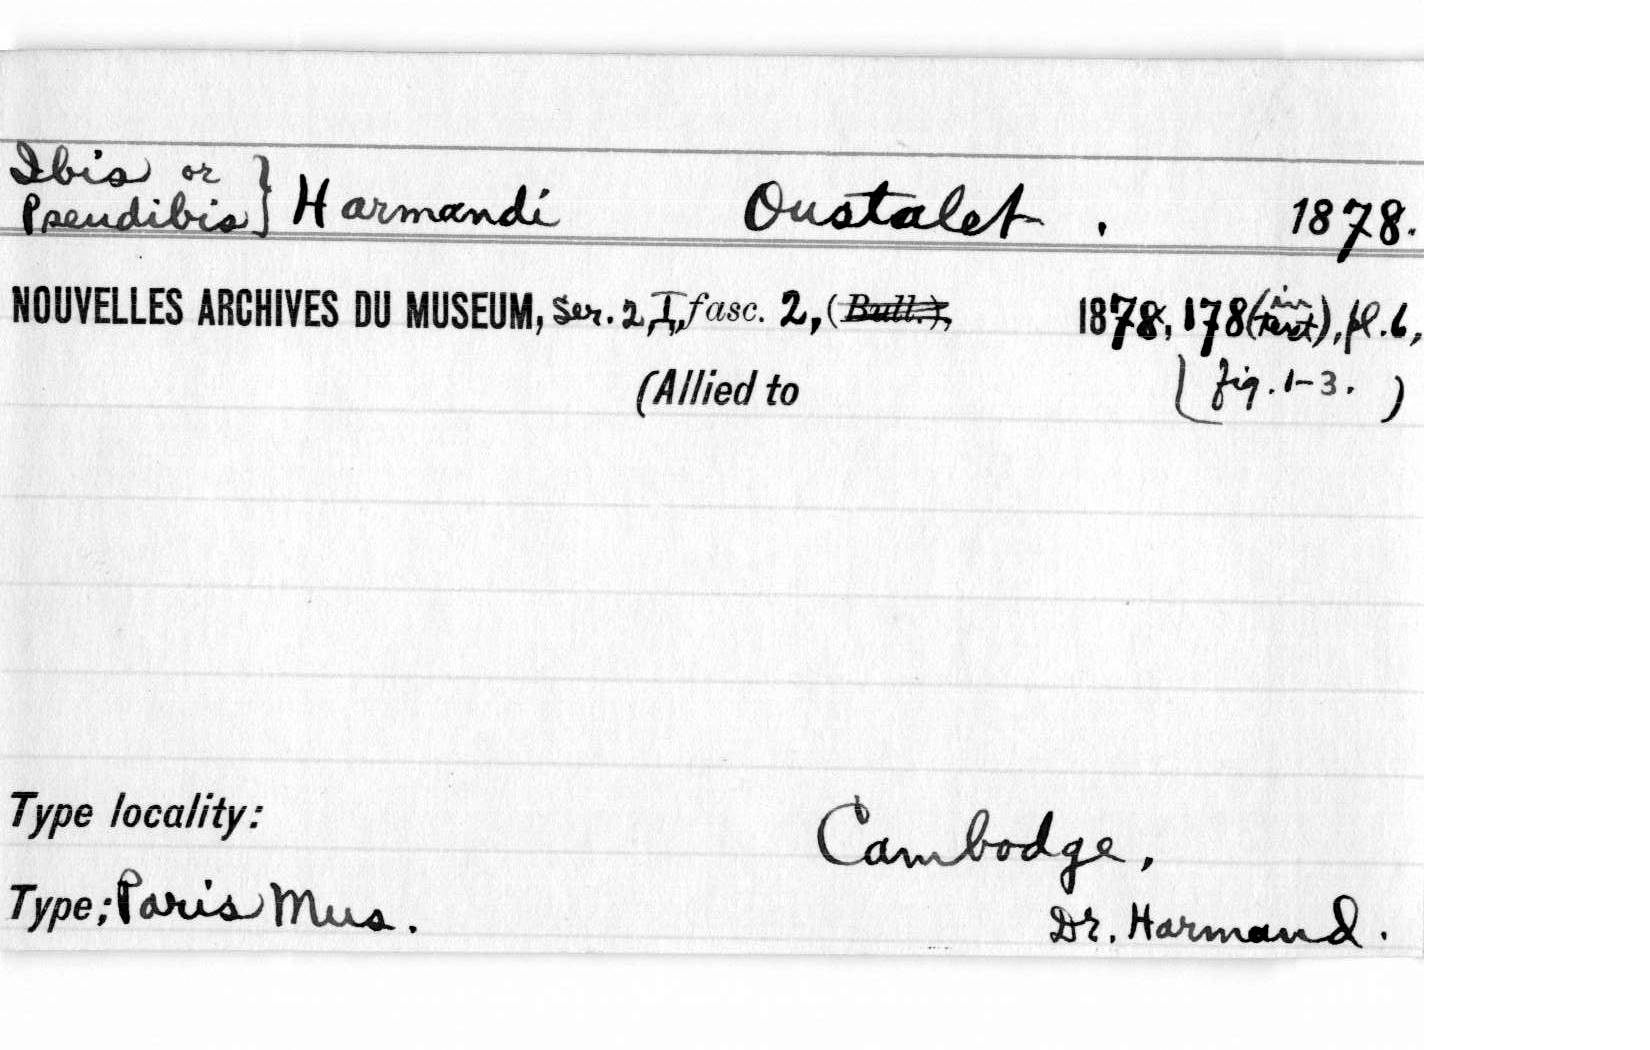 Ibis or
Pseudibis } Harmandi Oustalet . 1878.
NOUVELLES ARCHIVES DU MUSEUM, Ser. 2, I, fasc. 2, (Bull.), 1878, 178 (in text), pl. 6,
(Allied to fig. 1-3. )
Type locality: Cambodge,
Type; Paris Mus. Dr. Harmand.